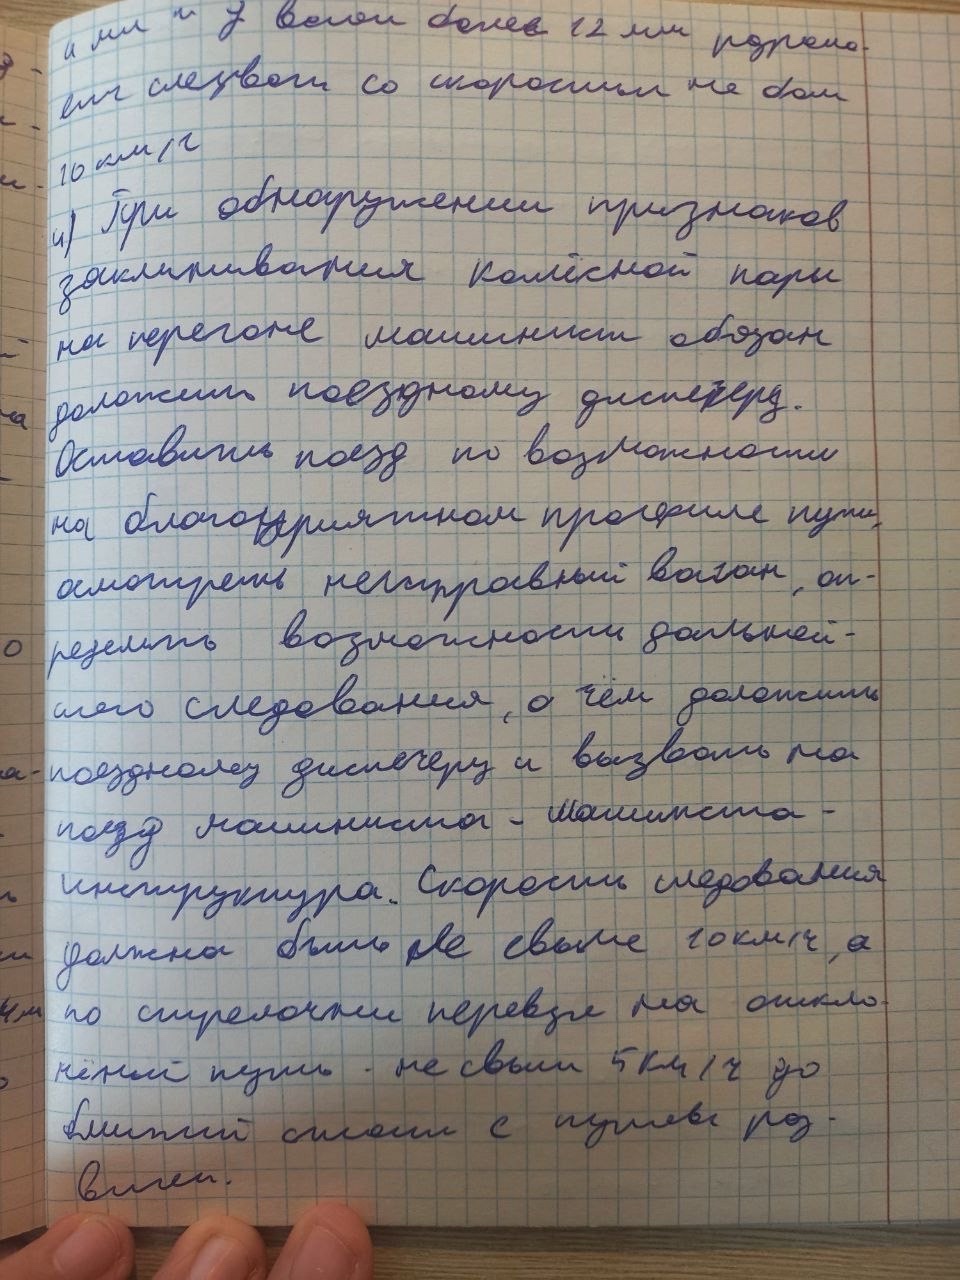 и мм и у вагон более 12 мм разреша-
ется следовать со скоростью не бол
10 км/ч
и) При обнаружении признаков
заклинивания колёсной пары
на перегоне машинист обязан
доложить поездному диспетчеру.
Оставить поезд по возможности
на благоприятном профиле пути,
осмотреть неисправный вагон, оп-
ределить возможность дальней-
шего следования, о чём доложить
поездному диспетчеру и вызвать на
поезд машиниста - машиниста -
инструктура. Скорость следования
должна быть не свыше 10 км/ч, а
по стрелочни перевдя на откло-
нёной путь - не свыш 5 км/ч до
ближний станции с путевы раз-
витеи.